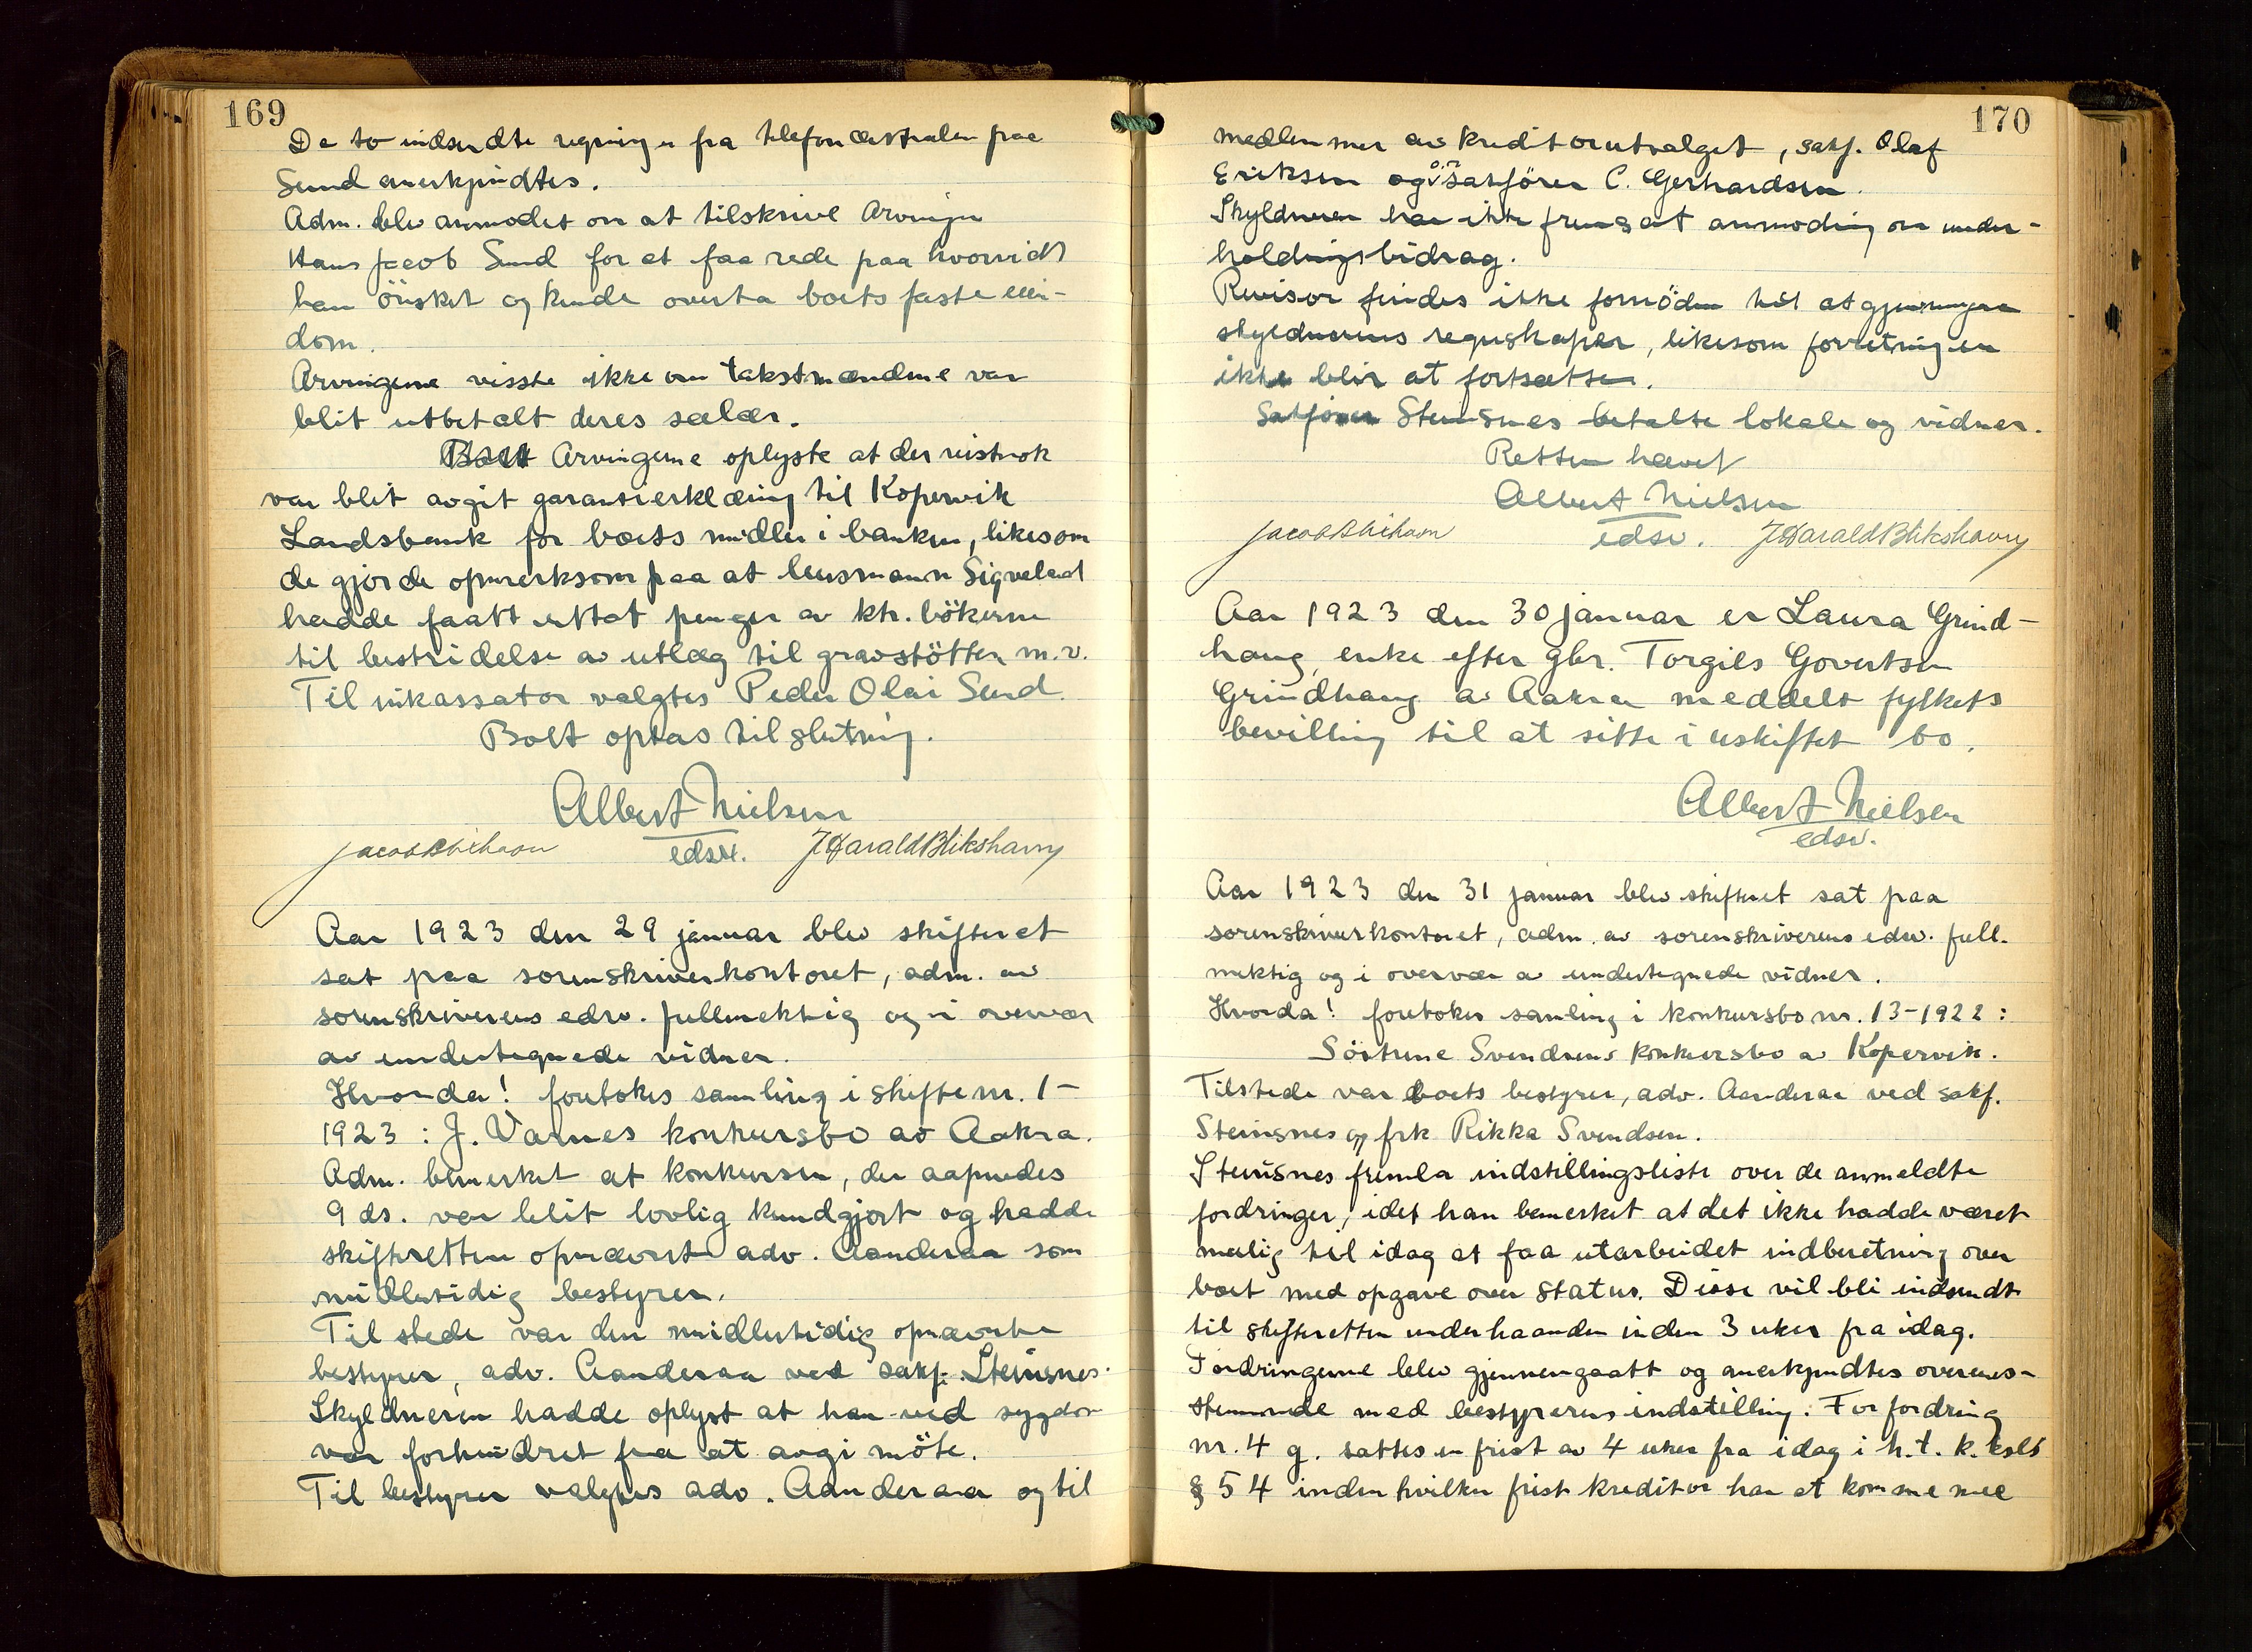 169
De to indsendte regninger fra telefoncentralen paa
Sund anerkjendtes.
Adm. blev anmodet om at tilskrive Arvingen
Hans Jacob Sund for at faa rede paa hvorvidt
han önsket og kunde overta boets faste eien-
dom.
Arvingene visste ikke om takstmændene var
blit utbetalt deres salær.
Arvingene oplyste at der visstnok
var blit avgit garantierklæring til Kopervik
Landsbank for boets midler i banken, likesom
de gjorde opmerksom paa at lensmann Sigveland
hadde faatt uttat penger av ktr. bökerne
til bestridelse av utlæg til gravstötten m.v.
Til inkassator valgtes Peder Olai Sund.
Boet optas til slutning.
Albert Nielsen
edsv.
Jacob Blikhavn
J Harald Blikshavn
Aar 1923 den 29 januar blev skifteret
sat paa sorenskriverkontoret, adm. av
sorenskriverens edsv. fullmektig og i overvær
av undertegnede vidner.
Hvorda! foretokes samling i skifte nr. 1-
1923: J. Varnes konkursbo av Aakra.
Adm. bemerket at konkursen, der aapnedes
9 ds. var blit lovlig kundgjort og hadde
skifteretten opnævnt adv. Aanderaa som
midlertidig bestyrer.
Til stede var den midlertidig opnævnte
bestyrer, adv. Aanderaa ved sakf. Steinsnes.
Skyldneren hadde oplyst at han ved sygdom
var forhindret fra at avgi möte.
Til bestyrer valgtes adv. Aanderaa og til
170
medlemmer av kreditorutvalget, sakf. Olaf
Eriksen og o.r.sakförer C. Gerhardsen.
Skyldneren har ikke fremsat anmodning om under-
holdningsbidrag.
Revisor findes ikke fornöden til at gjennemgaa
skyldnerens regnskaper, likesom forretningen
ikke blir at fortsætte.
Sakförer Steinsnes betalte lokale og vidner.
Retten hævet
Albert Nielsen
edsv.
Jacob Blikhavn
J Harald Blikshavn
Aar 1923 den 30 januar er Laura Grind-
haug, enke efter gbr. Torgils Govertsen
Grindhaug av Aakra meddelt fylkets
bevilling til at sitte i uskiftet bo.
Albert Nielsen
edsv.
Aar 1923 den 31 januar blev skifteret sat paa
sorenskriverkontoret, adm. av sorenskriverens edsv. full-
mektig og i overvær av undertegnede vidner.
Hvorda! foretokes samling i konkursbo nr. 13-1922:
Söstrene Svendsens konkursbo av Kopervik.
Tilstede var boets bestyrer, adv. Aanderaa ved sakf.
Steinsnes og frk Rikka Svendsen.
Steinsnes fremla indstillingsliste over de anmeldte
fordringer, idet han bemerket at det ikke hadde været
mulig til idag at faa utarbeidet indberetning over
boet med opgave over status. Disse vil bli indsendt
til skifteretten underhaanden inden 3 uker fra idag.
Fordringerne blev gjennemgaatt og anerkjendtes overens-
stemmende med bestyrerens indstilling. For fordring
nr. 4 g. sattes en frist av 4 uker fra idag i h.t. k.ksls
§ 54 inden hvilken frist kreditor har at komme med